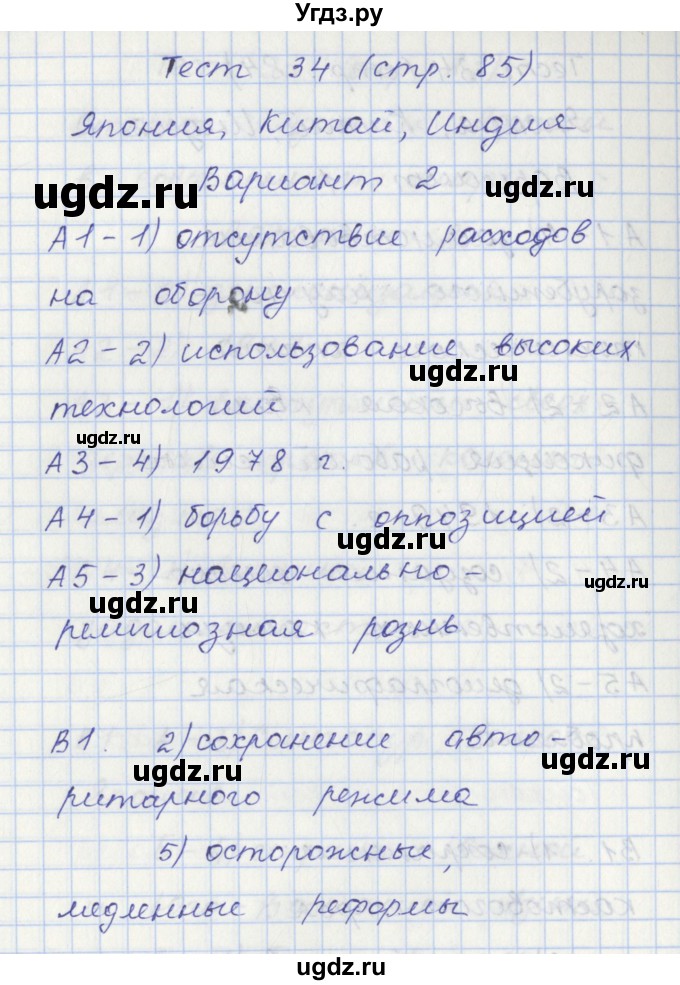 Угдз.ру
Тест 34 (стр. 85)
Япония, Китай, Индия
Вариант 2
ugdz.ru ugdz.ru
А1 – 1) отсутствие расходов
на оборону
А2 – 2) использование высоких
ugdz.ru
технологий
ugdz.ru
А3 – 4) 1978 г.
А4 – 1) борьбу с оппозицией
ugdz.ru
А5 – 3) национально-
ugdz.ru ugdz.ru
религиозная рознь
В1. 2) сохранение авто-
ugdz.ru
ритарного режима
5) осторожные,
ugdz.ru
медленные реформы
ugdz.ru